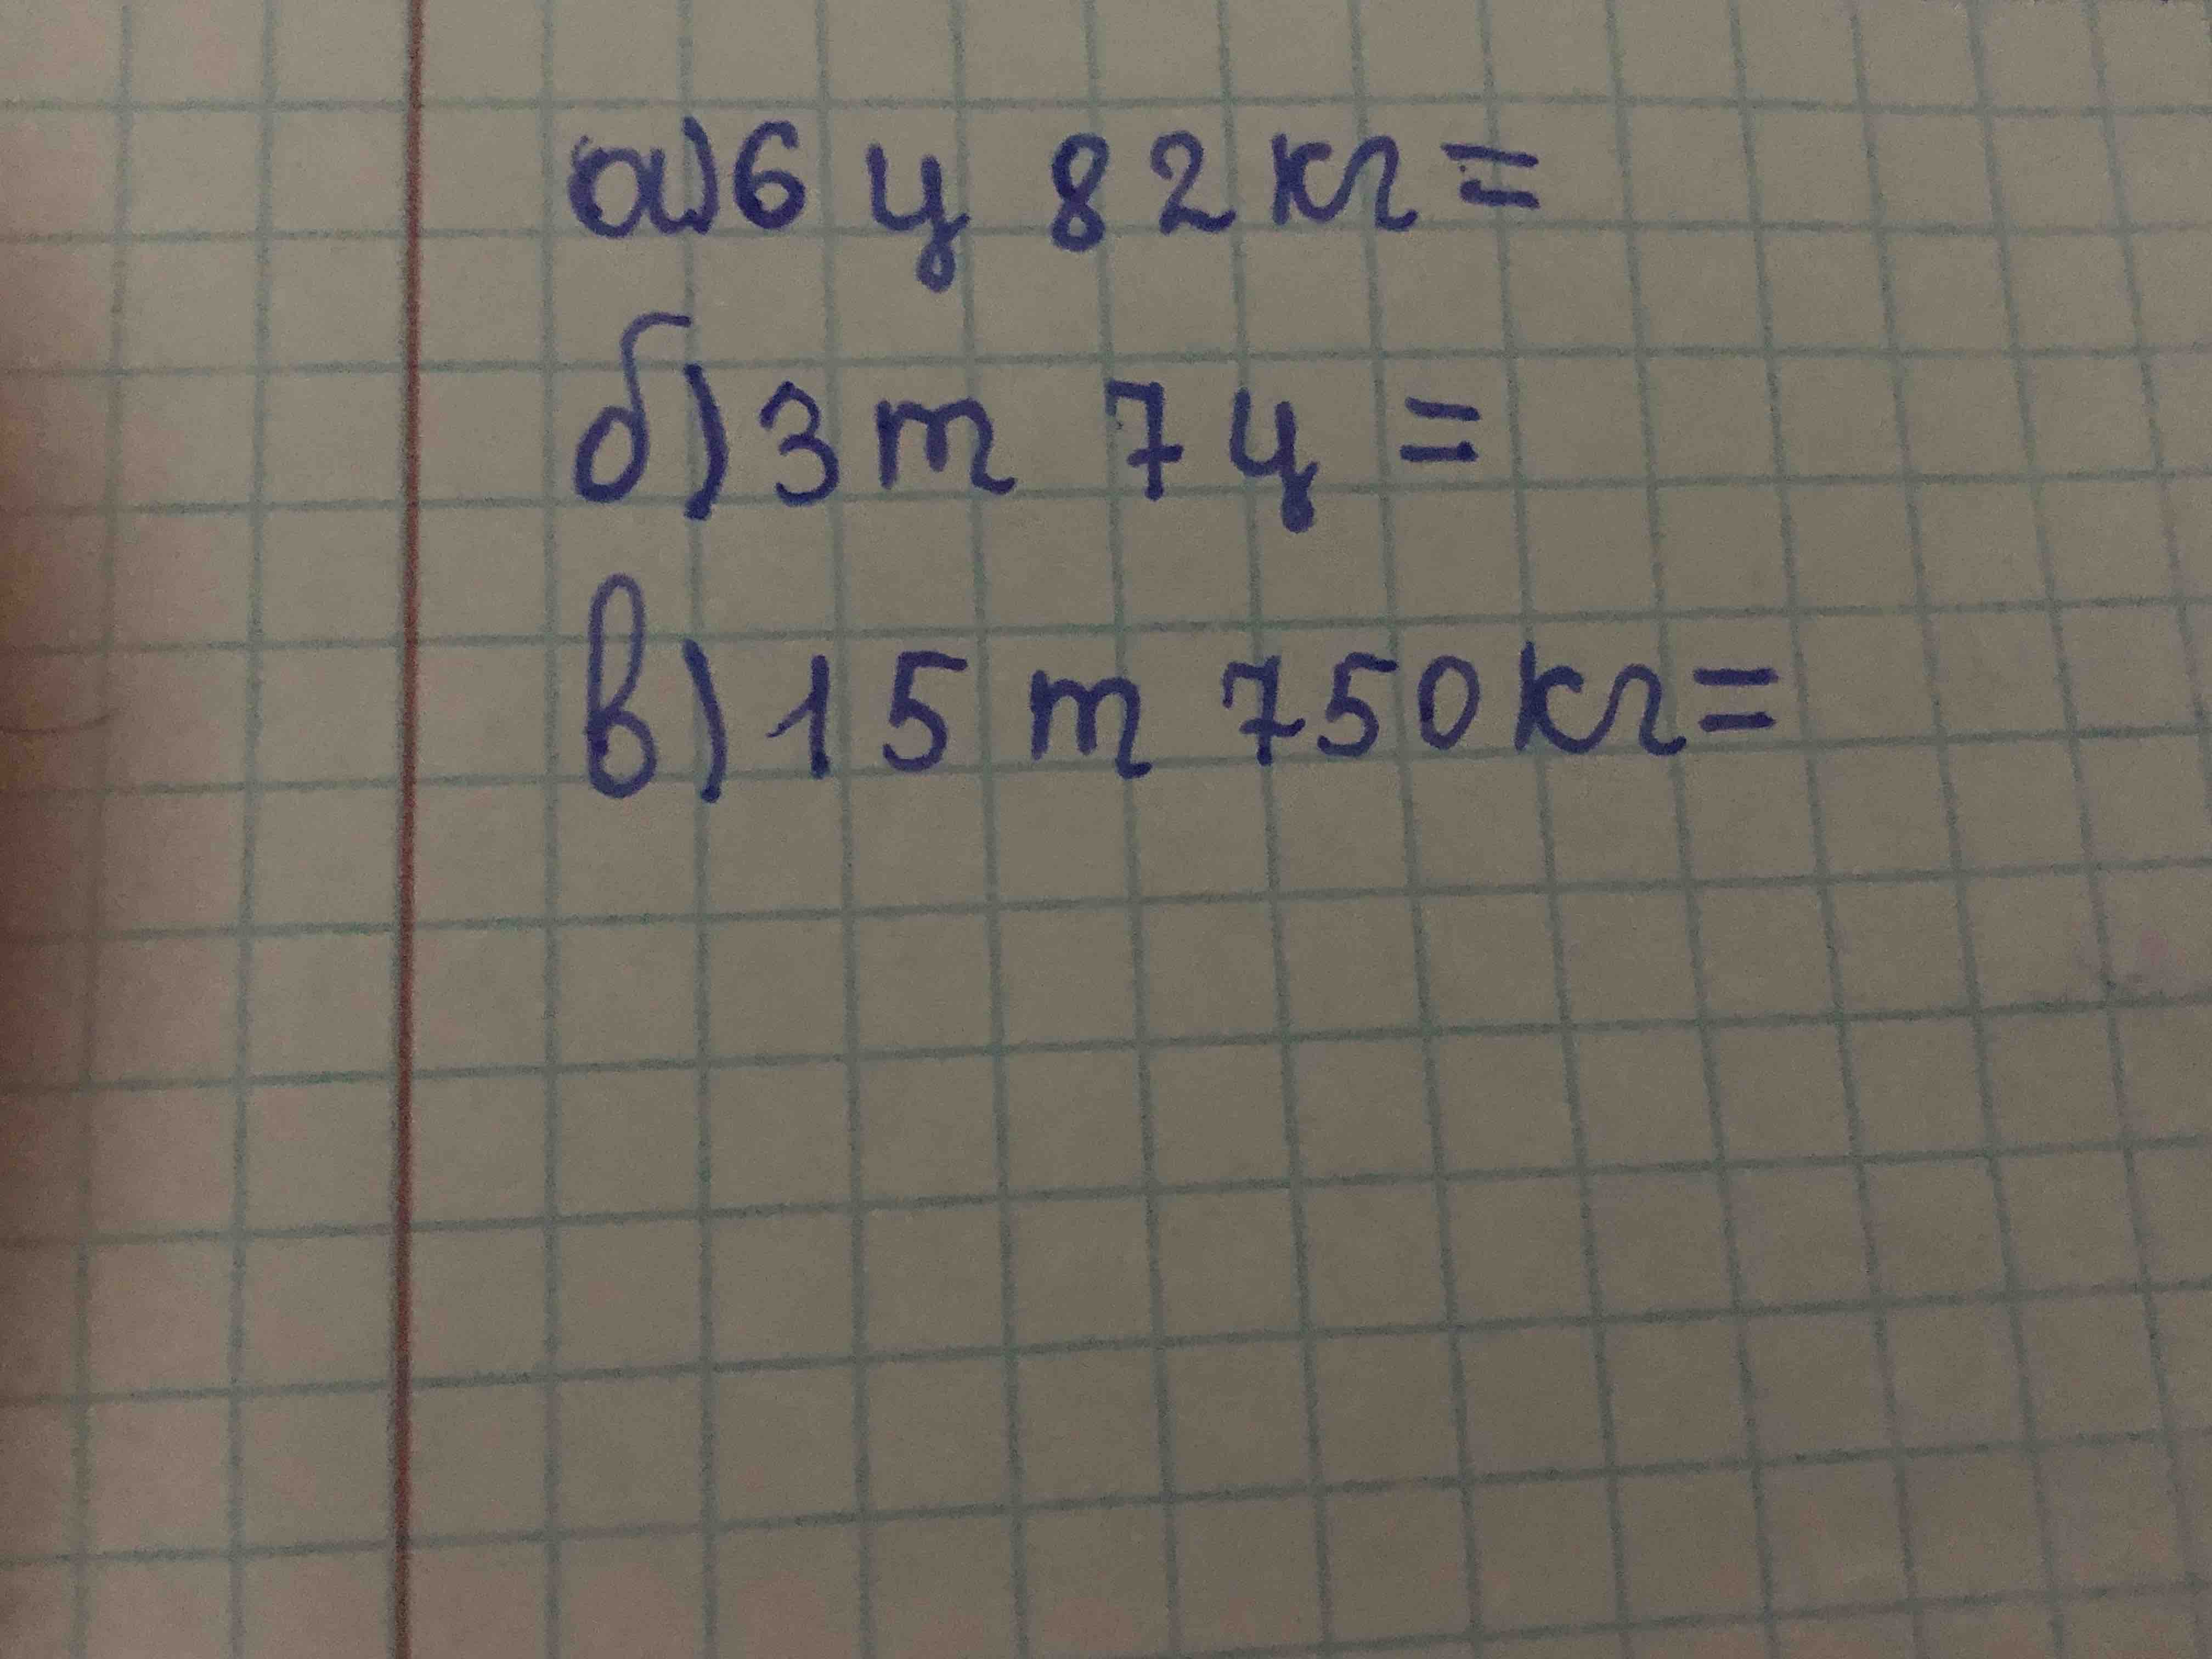 а) 6 ц 82 кг =
б) 3 т 7 ц =
в) 15 т 750 кг =